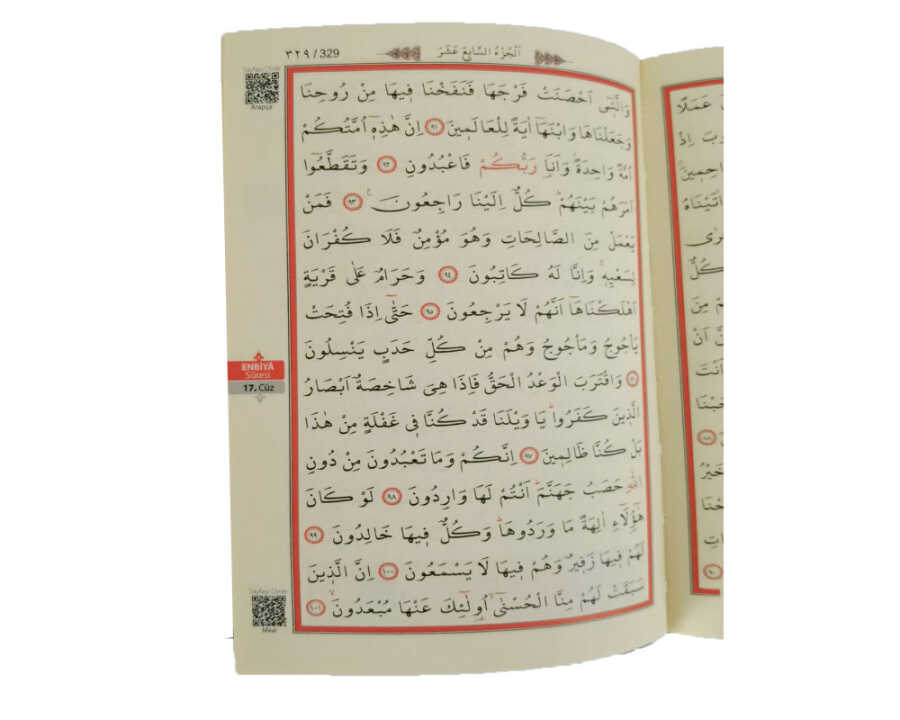 ٣٢٩ / 329
اَلْجُزْءُ السَّابِعُ عَشَرَ
Sayfayı Dinle
Arapça
وَالَّت۪ٓي اَحْصَنَتْ فَرْجَهَا فَنَفَخْنَا ف۪يهَا مِنْ رُوحِنَا
وَجَعَلْنَاهَا وَابْنَهَٓا اٰيَةً لِلْعَالَم۪ينَ ﴿٩١﴾ اِنَّ هٰذِه۪ٓ اُمَّتُكُمْ
اُمَّةً وَاحِدَةًۘ وَاَنَا۬ رَبُّكُمْ فَاعْبُدُونِ ﴿٩٢﴾ وَتَقَطَّعُٓوا
اَمْرَهُمْ بَيْنَهُمْۜ كُلٌّ اِلَيْنَا رَاجِعُونَ۟ ﴿٩٣﴾ فَمَنْ
يَعْمَلْ مِنَ الصَّالِحَاتِ وَهُوَ مُؤْمِنٌ فَلَا كُفْرَانَ
لِسَعْيِه۪ۚ وَاِنَّا لَهُ كَاتِبُونَ ﴿٩٤﴾ وَحَرَامٌ عَلٰى قَرْيَةٍ
اَهْلَكْنَاهَٓا اَنَّهُمْ لَا يَرْجِعُونَ ﴿٩٥﴾ حَتّٰٓى اِذَا فُتِحَتْ
يَأْجُوجُ وَمَأْجُوجُ وَهُمْ مِنْ كُلِّ حَدَبٍ يَنْسِلُونَ
﴿٩٦﴾ وَاقْتَرَبَ الْوَعْدُ الْحَقُّ فَاِذَا هِيَ شَاخِصَةٌ اَبْصَارُ
الَّذ۪ينَ كَفَرُواۜ يَا وَيْلَنَا قَدْ كُنَّا ف۪ي غَفْلَةٍ مِنْ هٰذَا
بَلْ كُنَّا ظَالِم۪ينَ ﴿٩٧﴾ اِنَّكُمْ وَمَا تَعْبُدُونَ مِنْ دُونِ
اللّٰهِ حَصَبُ جَهَنَّمَۜ اَنْتُمْ لَهَا وَارِدُونَ ﴿٩٨﴾ لَوْ كَانَ
هٰٓؤُ۬لَٓاءِ اٰلِهَةً مَا وَرَدُوهَاۜ وَكُلٌّ ف۪يهَا خَالِدُونَ ﴿٩٩﴾
لَهُمْ ف۪يهَا زَف۪يرٌ وَهُمْ ف۪يهَا لَا يَسْمَعُونَ ﴿١٠٠﴾ اِنَّ الَّذ۪ينَ
سَبَقَتْ لَهُمْ مِنَّا الْحُسْنٰٓىۙ اُو۬لٰٓئِكَ عَنْهَا مُبْعَدُونَۙ ﴿١٠١﴾
ENBİYÂ
Sûresi
17. Cüz
Sayfayı Dinle
Meal
عَمَلًا
اِذْ
اٰتَيْنَاهُ
كُلٌّ
اَنْ
اَنْتَ